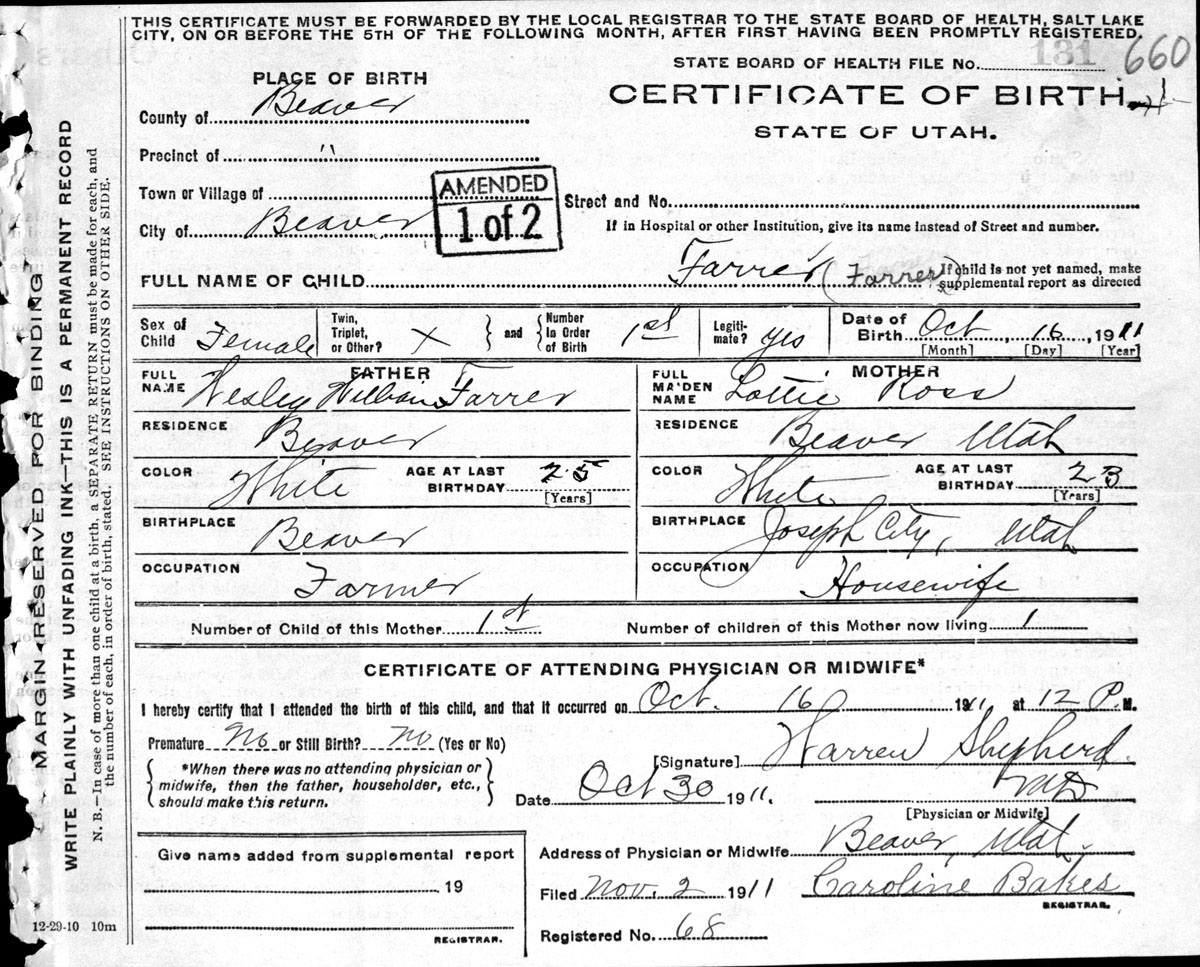 THIS CERTIFICATE MUST BE FORWARDED BY THE LOCAL REGISTRAR TO THE STATE BOARD OF HEALTH, SALT LAKE
CITY, ON OR BEFORE THE 5TH OF THE FOLLOWING MONTH, AFTER FIRST HAVING BEEN PROMPTLY REGISTERED.
STATE BOARD OF HEALTH FILE No. 131 660
PLACE OF BIRTH
CERTIFICATE OF BIRTH
County of Beaver
STATE OF UTAH.
Precinct of "
Town or Village of
AMENDED
1 of 2
Street and No.
City of Beaver
If in Hospital or other Institution, give its name instead of Street and number.
FULL NAME OF CHILD Farrer (Farrer)
If child is not yet named, make
supplemental report as directed
Sex of Child Female
Twin, Triplet, or Other? X and Number in Order of Birth 1st
Legitimate? yes
Date of Birth Oct 16, 1911
[Month] [Day] [Year]
FATHER
FULL NAME Wesley William Farrer
RESIDENCE Beaver
COLOR White
AGE AT LAST BIRTHDAY 25
[Years]
BIRTHPLACE Beaver
OCCUPATION Farmer
MOTHER
FULL MAIDEN NAME Lottie Ross
RESIDENCE Beaver Utah
COLOR White
AGE AT LAST BIRTHDAY 23
[Years]
BIRTHPLACE Joseph City, Utah
OCCUPATION Housewife
Number of Child of this Mother 1st
Number of children of this Mother now living 1
CERTIFICATE OF ATTENDING PHYSICIAN OR MIDWIFE*
I hereby certify that I attended the birth of this child, and that it occurred on Oct. 16 1911 at 12 P. M.
Premature No or Still Birth? No (Yes or No)
*When there was no attending physician or
midwife, then the father, householder, etc.,
should make this return.
[Signature] Warren Shepherd
Date Oct 30 1911. MD
[Physician or Midwife]
Give name added from supplemental report
19
REGISTRAR.
Address of Physician or Midwife Beaver, Utah.
Filed Nov. 2 1911 Caroline Bakes
REGISTRAR.
Registered No. 68
12-29-10 10m
MARGIN RESERVED FOR BINDING
WRITE PLAINLY WITH UNFADING INK—THIS IS A PERMANENT RECORD
N. B.—In case of more than one child at a birth, a SEPARATE RETURN must be made for each, and
the number of each, in order of birth, stated. SEE INSTRUCTIONS ON OTHER SIDE.